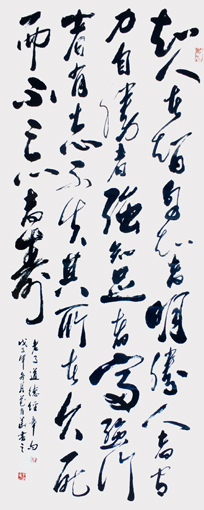 知人者智自知者明勝人者有
力自勝者強知足者富強行
者有志不失其所者久死
而不亡者壽
老子道德經章句
戊子年月書之